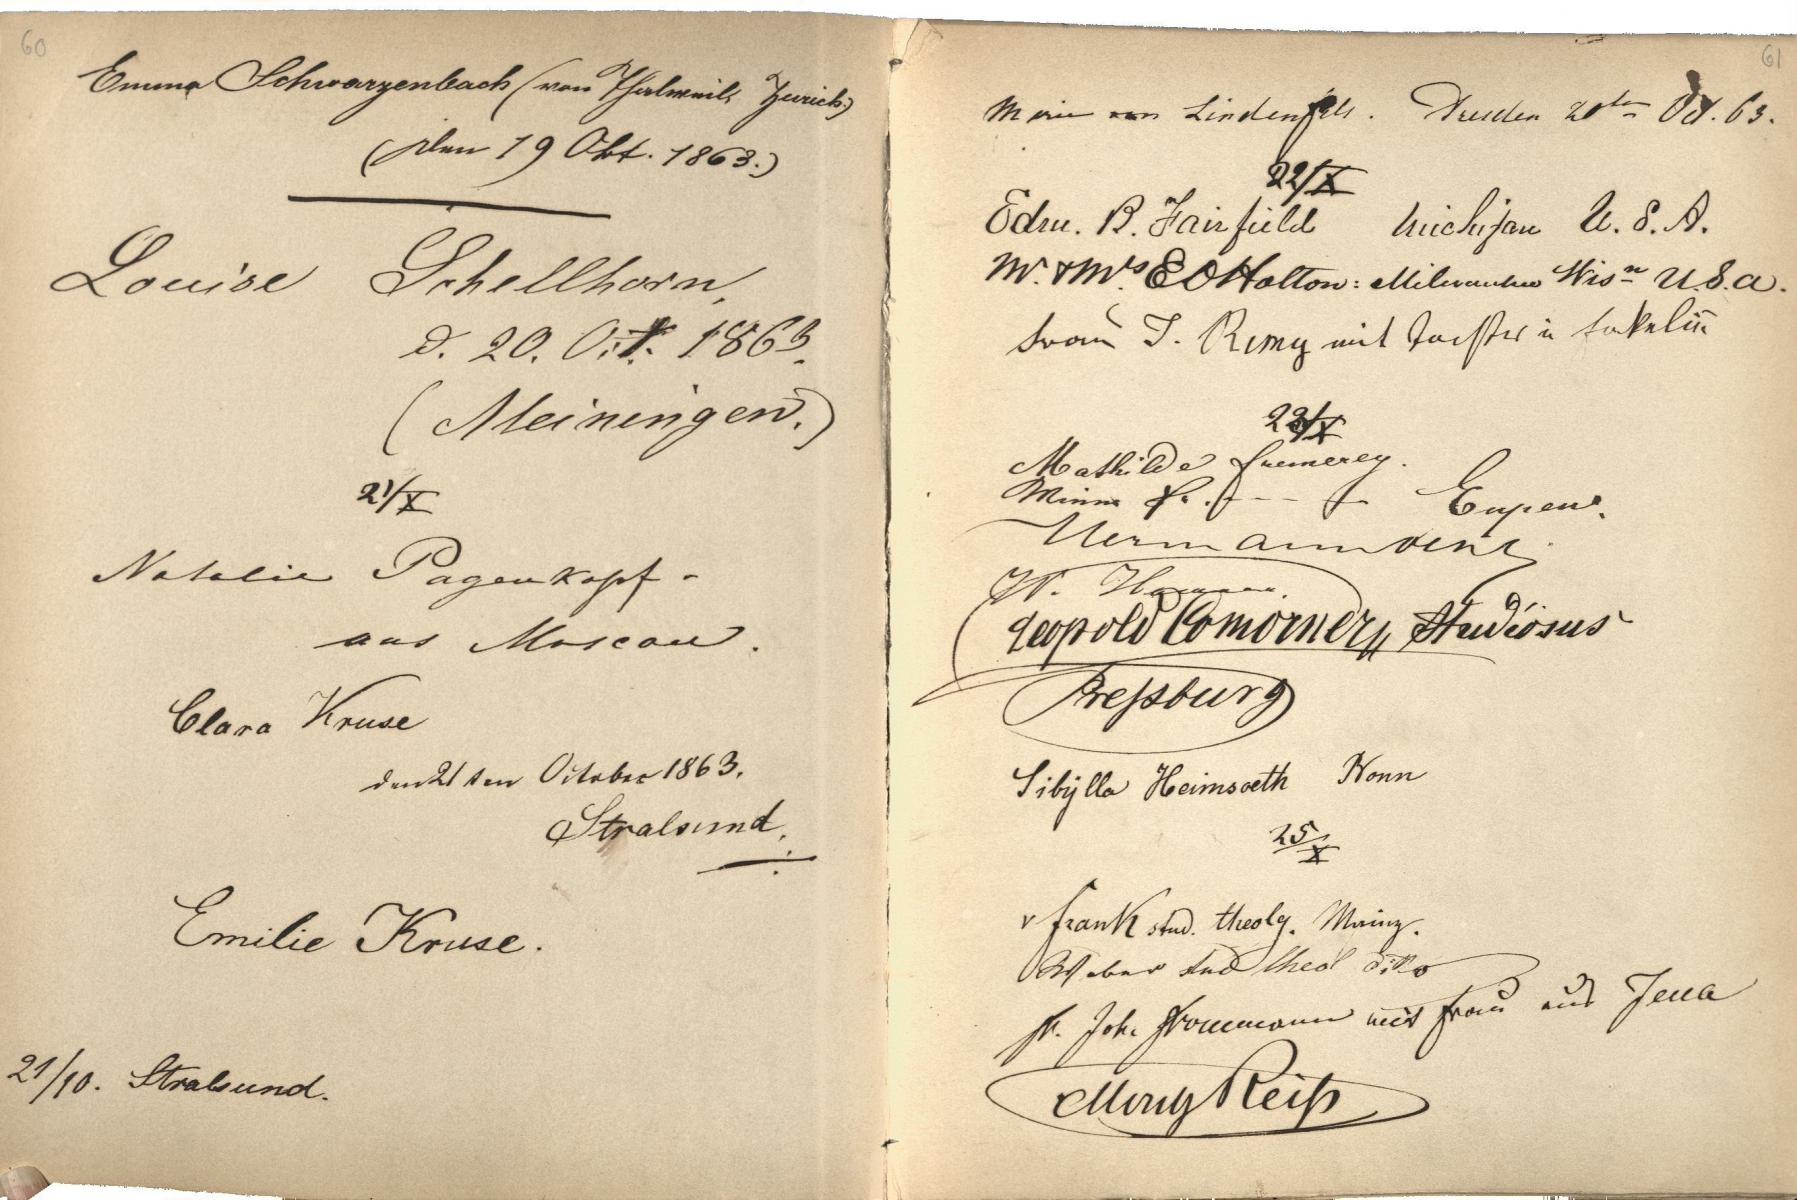 60
Emma Schwarzenbach (von Thalweil, Zürich.)
(den 19 Okt. 1863.)
Louise Schellhorn,
d. 20. Oct. 1863.
(Meiningen.)
21/X
Natalie Pagenkopf -
aus Moscau.
Clara Kruse
den 21ten October 1863.
Stralsund.
Emilie Kruse.
21/10. Stralsund.
61
Marie von Lindenfels. Dresden 20ten Oct. 63.
22/X
Edm. B. Fairfield Michigan U. S. A.
Mr. & Mrs. E D Holton: Milwaukee Wisn U.S.a.
Frau J. Remy mit Tochter u
23/X
Mathilde Fremerey.
Minna Fr. - - - Eupen.
Hermann
W.
Leopold Comorner, Studiosus
Preßburg
Sibylla Heimsoeth Bonn
25/X
v Frank stud. theolg. Mainz.
Weber stud theol dito
Fr. Joh. Frommann mit Frau aus Jena
Moritz Reiß